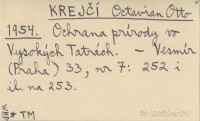 KREJČÍ Octavian Otto
1954. Ochrana prírody vo
Vysokých Tatrách. — Vesmír
(Praha) 33, nr 7: 252 i
il. na 253.
* TM